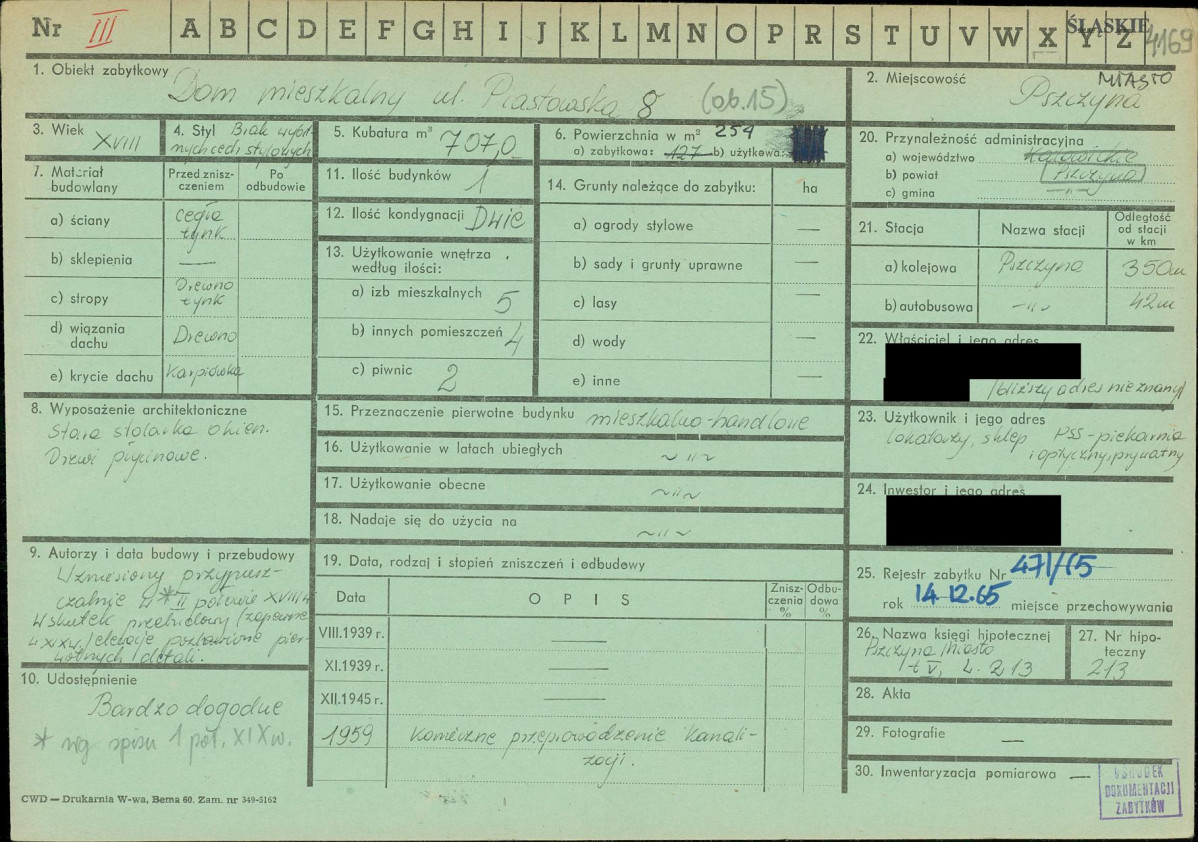 Nr III A B C D E F G H I J K L M N O P R S T U V W X Y Z ŚLĄSKIE 4169
1. Obiekt zabytkowy
Dom mieszkalny ul. Piastowska 8 (ob. 15)
2. Miejscowość
MIASTO
Pszczyna
3. Wiek
XVIII
4. Styl Brak wybit-
nych cech stylowych
5. Kubatura m³
707,0
6. Powierzchnia w m² 254
a) zabytkowa: 127 b) użytkowa:
20. Przynależność administracyjna
a) województwo Katowickie
b) powiat Pszczyna
c) gmina —"—
7. Materiał budowlany
Przed znisz-
czeniem
Po
odbudowie
a) ściany cegła
tynk
b) sklepienia —
c) stropy Drewno
tynk
d) wiązania
dachu Drewno
e) krycie dachu Karpiówka
11. Ilość budynków 1
12. Ilość kondygnacji Dwie
13. Użytkowanie wnętrza
według ilości:
a) izb mieszkalnych 5
b) innych pomieszczeń 4
c) piwnic 2
14. Grunty należące do zabytku: ha
a) ogrody stylowe —
b) sady i grunty uprawne —
c) lasy —
d) wody —
e) inne —
21. Stacja Nazwa stacji Odległość
od stacji
w km
a) kolejowa Pszczyna 350m
b) autobusowa —"— 42m
22. Właściciel i jego adres
/bliższy adres nieznany/
8. Wyposażenie architektoniczne
Stara stolarka okien.
Drzwi płycinowe.
15. Przeznaczenie pierwotne budynku mieszkalno-handlowe
16. Użytkowanie w latach ubiegłych ~"~
17. Użytkowanie obecne ~"~
18. Nadaje się do użycia na ~"~
23. Użytkownik i jego adres
lokatorzy, sklep PSS-piekarnia
i optyczny, prywatny
24. Inwestor i jego adres
9. Autorzy i data budowy i przebudowy
Wzniesiony przypusz-
czalnie w * II połowie XVIII w
Wskutek przebudowy /zapewne
w XIX w/ elewacje pozbawione pier-
wotnych detali.
19. Data, rodzaj i stopień zniszczeń i odbudowy
Data O P I S Znisz-
czenia
% Odbu-
dowa
%
VIII.1939 r. —
XI.1939 r. —
XII.1945 r. —
1959 Konieczne przeprowadzenie kanali-
zacji.
25. Rejestr zabytku Nr 471/65
rok 14.12.65 miejsce przechowywania
26. Nazwa księgi hipotecznej
Pszczyna Miasto
t V, L. 213
27. Nr hipo-
teczny
213
10. Udostępnienie
Bardzo dogodne
* wg spisu 1 poł. XIX w.
28. Akta
29. Fotografie —
30. Inwentaryzacja pomiarowa —
OŚRODEK
DOKUMENTACJI
ZABYTKÓW
CWD — Drukarnia W-wa, Bema 60. Zam. nr 349-5162